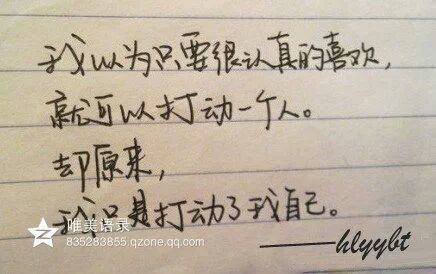 我以为只要很认真的喜欢，
就可以打动一个人。
却原来，
我只是打动了我自己。
唯美语录
835283855.qzone.qq.com
——hlyybt